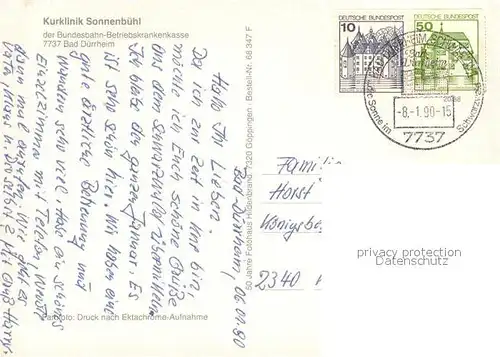 Kurklinik Sonnenbühl
der Bundesbahn-Betriebskrankenkasse
7737 Bad Dürrheim
50 Jahre Fotohaus Hildenbrand 7320 Göppingen Bestell-Nr. 68 347 F
Farbfoto: Druck nach Ektachrome-Aufnahme
10 DEUTSCHE BUNDESPOST
50 DEUTSCHE BUNDESPOST
-8.-1.90-15
7737
Sonne im Schwarzwald
Bad Dürrheim, 06.01.90
Hallo Ihr Lieben.
Da ich zur Zeit in Kur bin,
möchte ich Euch schöne Grüße
aus dem Schwarzwald übermitteln.
Ich bleibe den ganzen Januar. Es
ist sehr schön hier. Wir haben eine
gute ärztliche Betreuung und
wandern sehr viel. Habe ein schönes
Einzelzimmer mit Telefon,
Familie
Horst
Königsbe
2340
privacy protection
Datenschutz